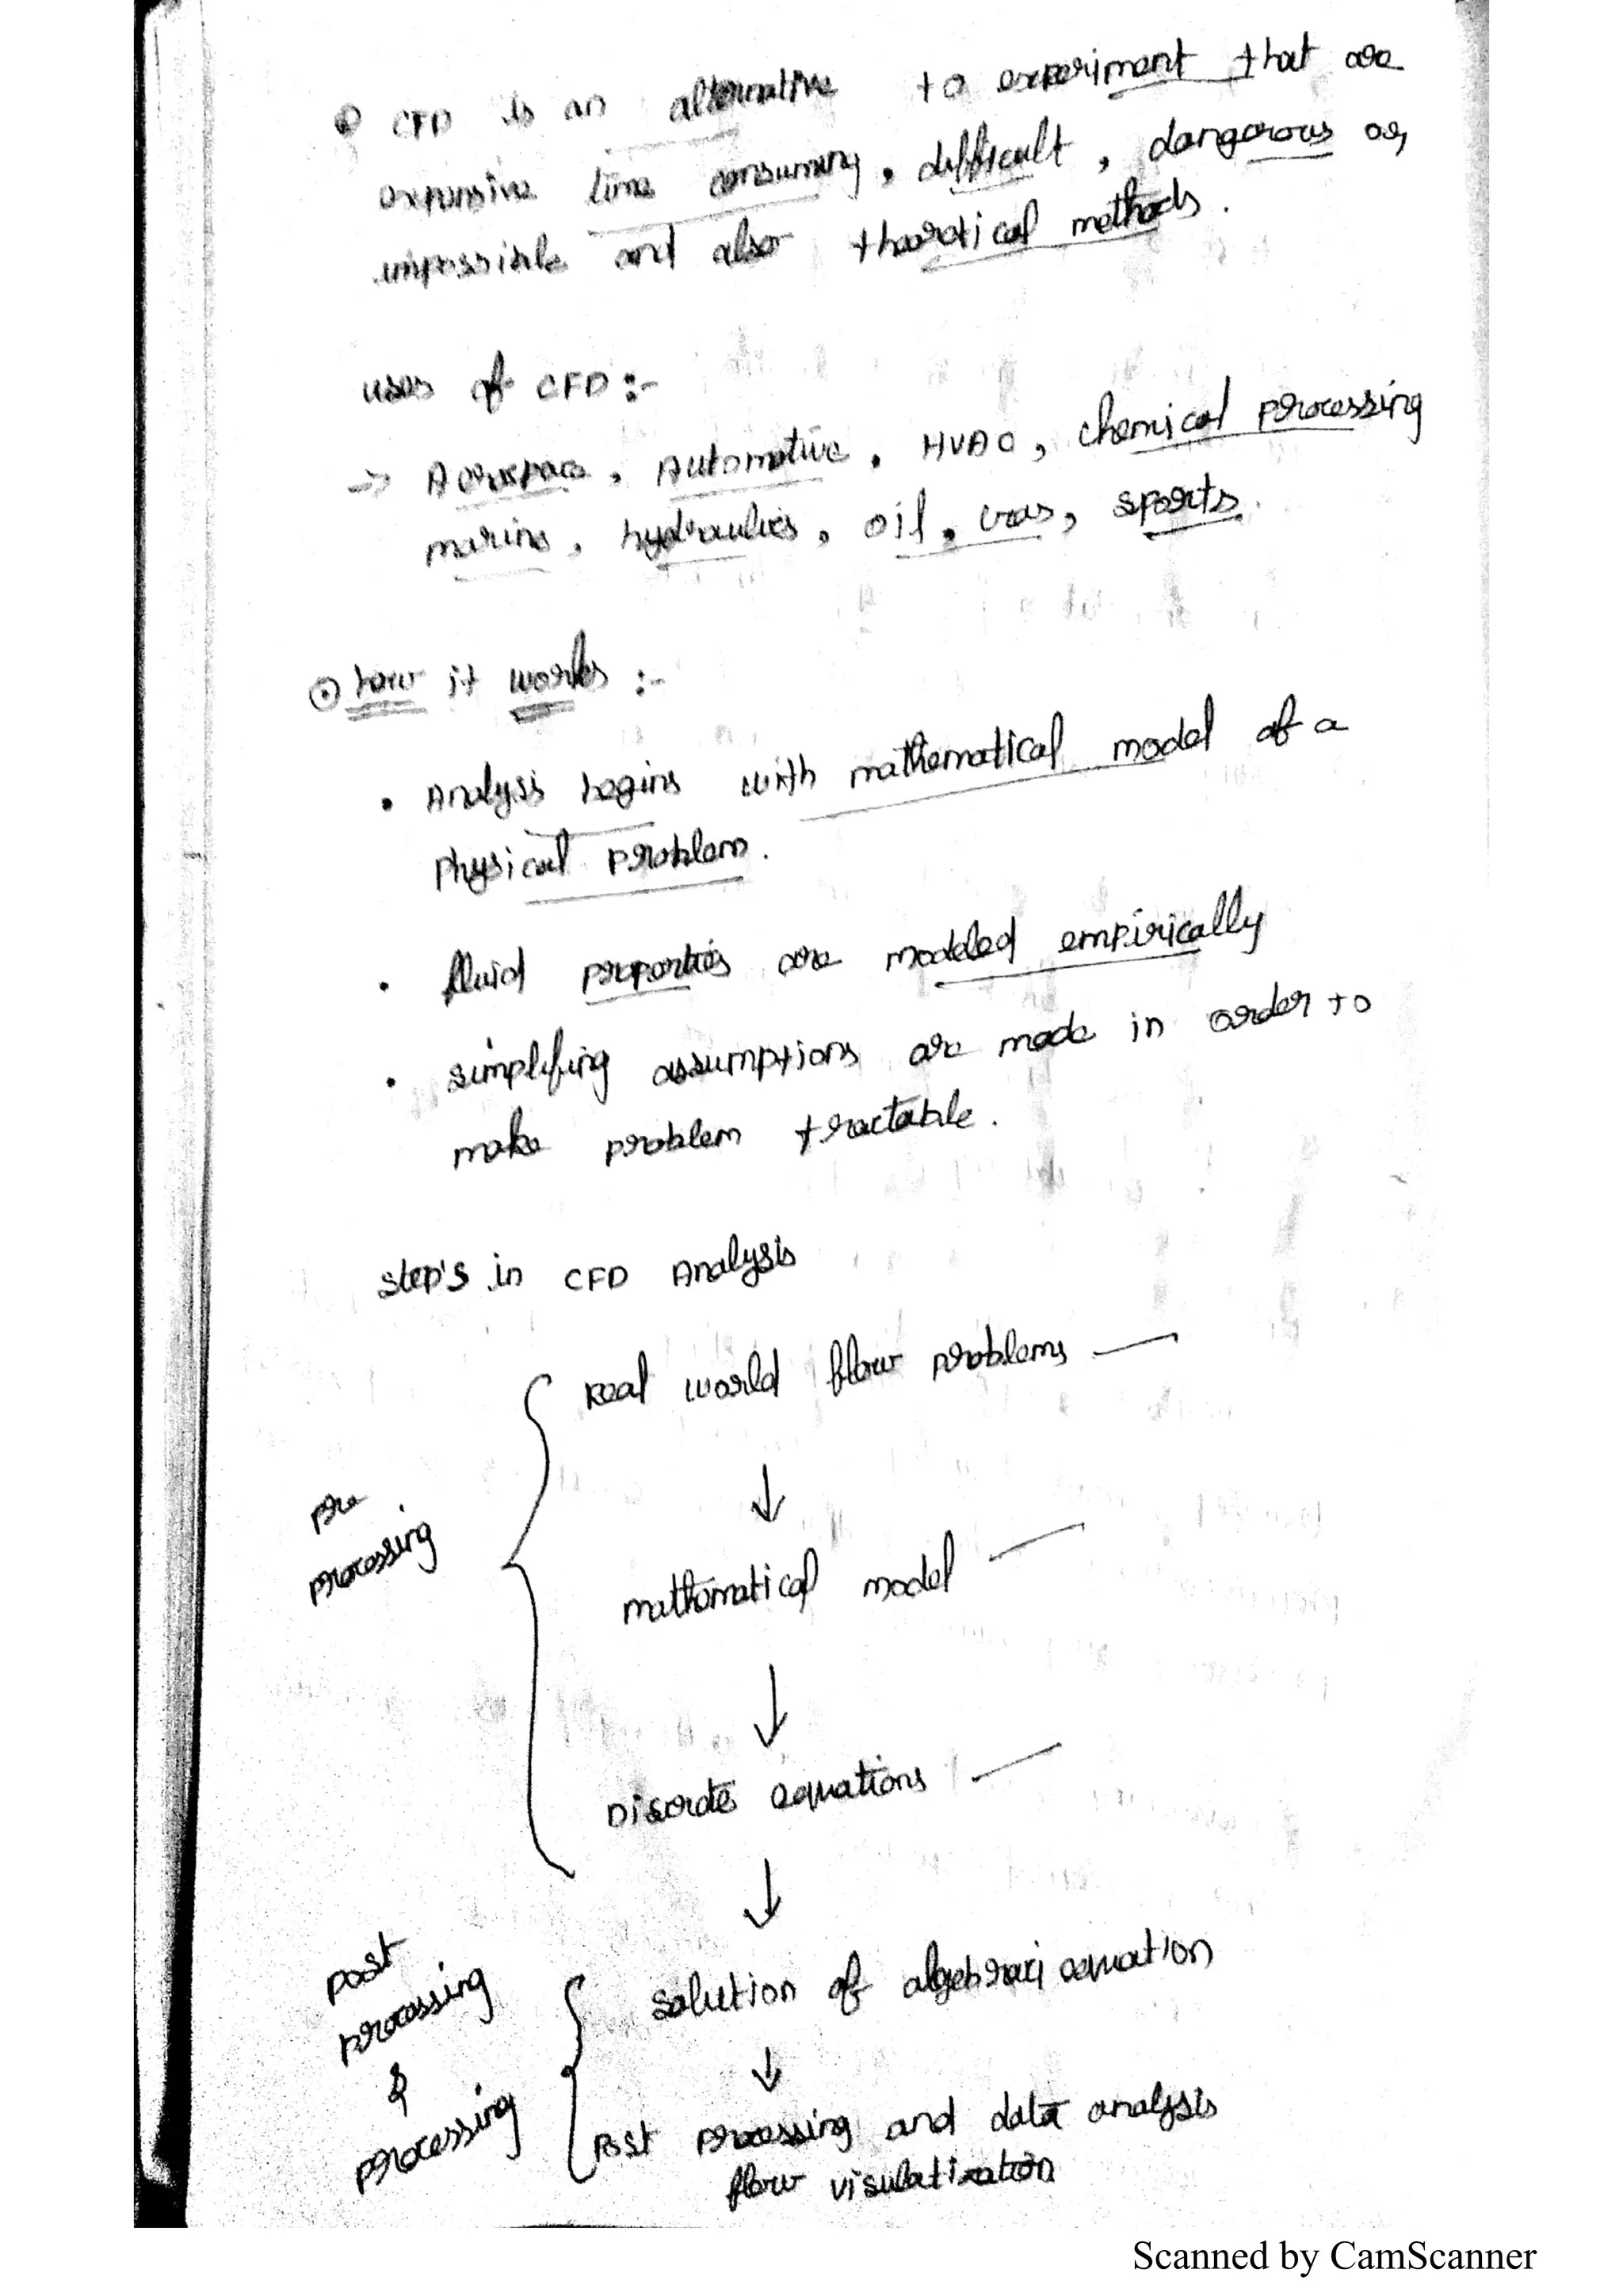 ⊙ CFD is an alternative to experiment that are
expensive time consuming, difficult, dangerous or,
impossible and also theoretical methods.
uses of CFD :-
-> Aerospace, Automotive, HVAC, chemical processing
marine, hydraulics, oil, Gas, sports.
⊙ how it works :-
• Analysis begins with mathematical model of a
physical problem.
• fluid properties are modeled empirically
• simplifing assumptions are made in order to
make problem tractable.
step's in CFD Analysis
Real world flow problems —
↓
pre
processing
mathematical model —
↓
Discrete equations —
↓
post
processing
&
processing
solution of algebraic equation
↓
Post processing and data analysis
flow visulatization
Scanned by CamScanner